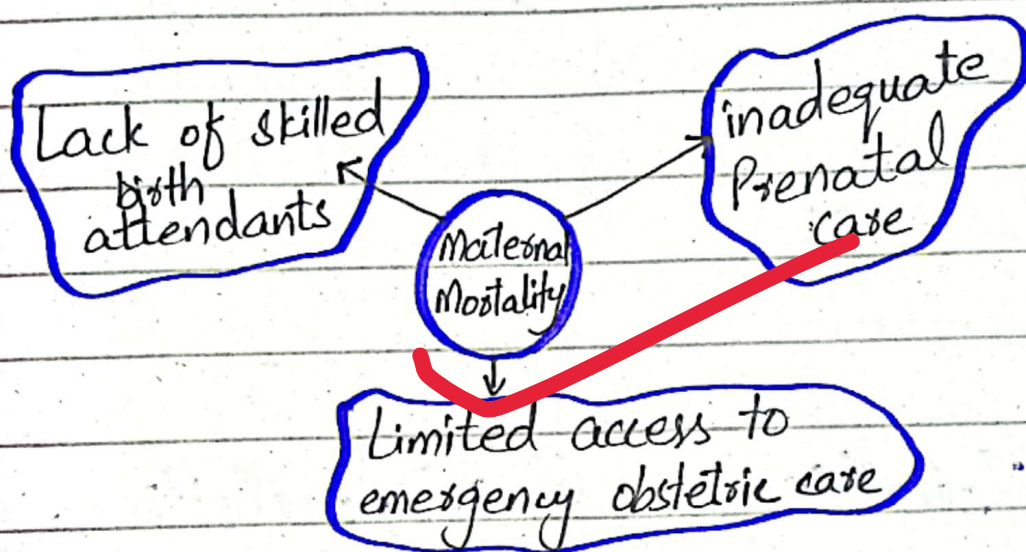 Lack of skilled
birth
attendants
inadequate
Prenatal
care
Maternal
Mortality
Limited access to
emergency obstetric care